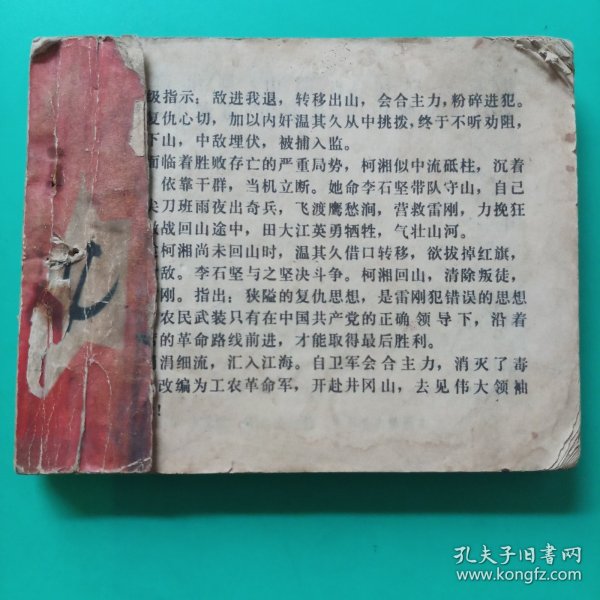 级指示：敌进我退，转移出山，会合主力，粉碎进犯。
复仇心切，加以内奸温其久从中挑拨，终于不听劝阻，
下山，中敌埋伏，被捕入监。
面临着胜败存亡的严重局势，柯湘似中流砥柱，沉着
依靠干群，当机立断。她命李石坚带队守山，自己
尖刀班雨夜出奇兵，飞渡鹰愁涧，营救雷刚，力挽狂
敌战回山途中，田大江英勇牺牲，气壮山河。
柯湘尚未回山时，温其久借口转移，欲拔掉红旗，
敌。李石坚与之坚决斗争。柯湘回山，清除叛徒，
刚。指出：狭隘的复仇思想，是雷刚犯错误的思想
农民武装只有在中国共产党的正确领导下，沿着
的革命路线前进，才能取得最后胜利。
涓细流，汇入江海。自卫军会合主力，消灭了毒
改编为工农革命军，开赴井冈山，去见伟大领袖
！
孔夫子旧书网
www.kongfz.com